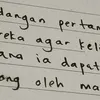 dangan pertam
reka agar keli
ana ia dapat
ong oleh ma